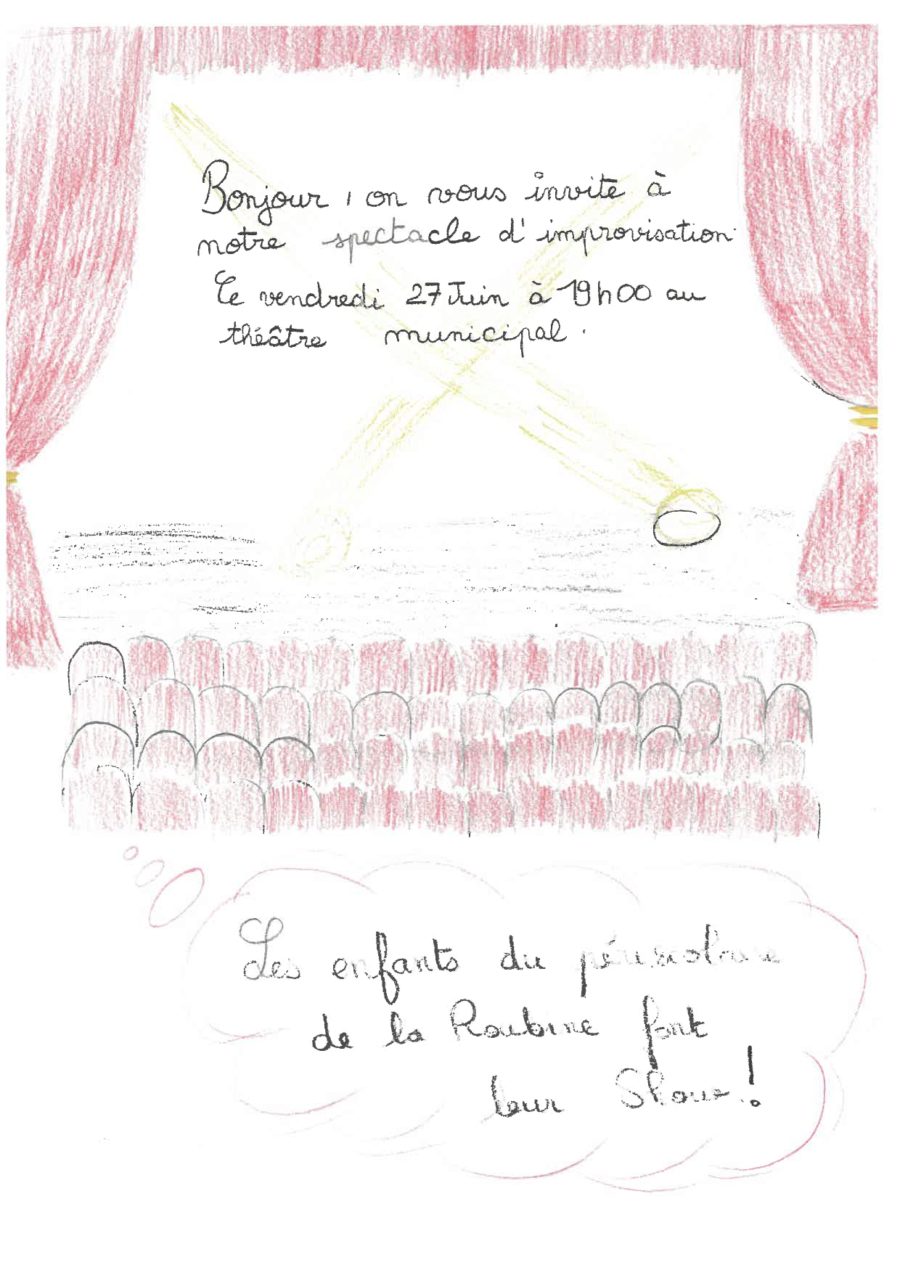 Bonjour, on vous invite à
notre spectacle d'improvisation.
Le vendredi 27 Juin à 19h00 au
théâtre municipal.
Les enfants du périscolaire
de la Roubine font
leur Show !